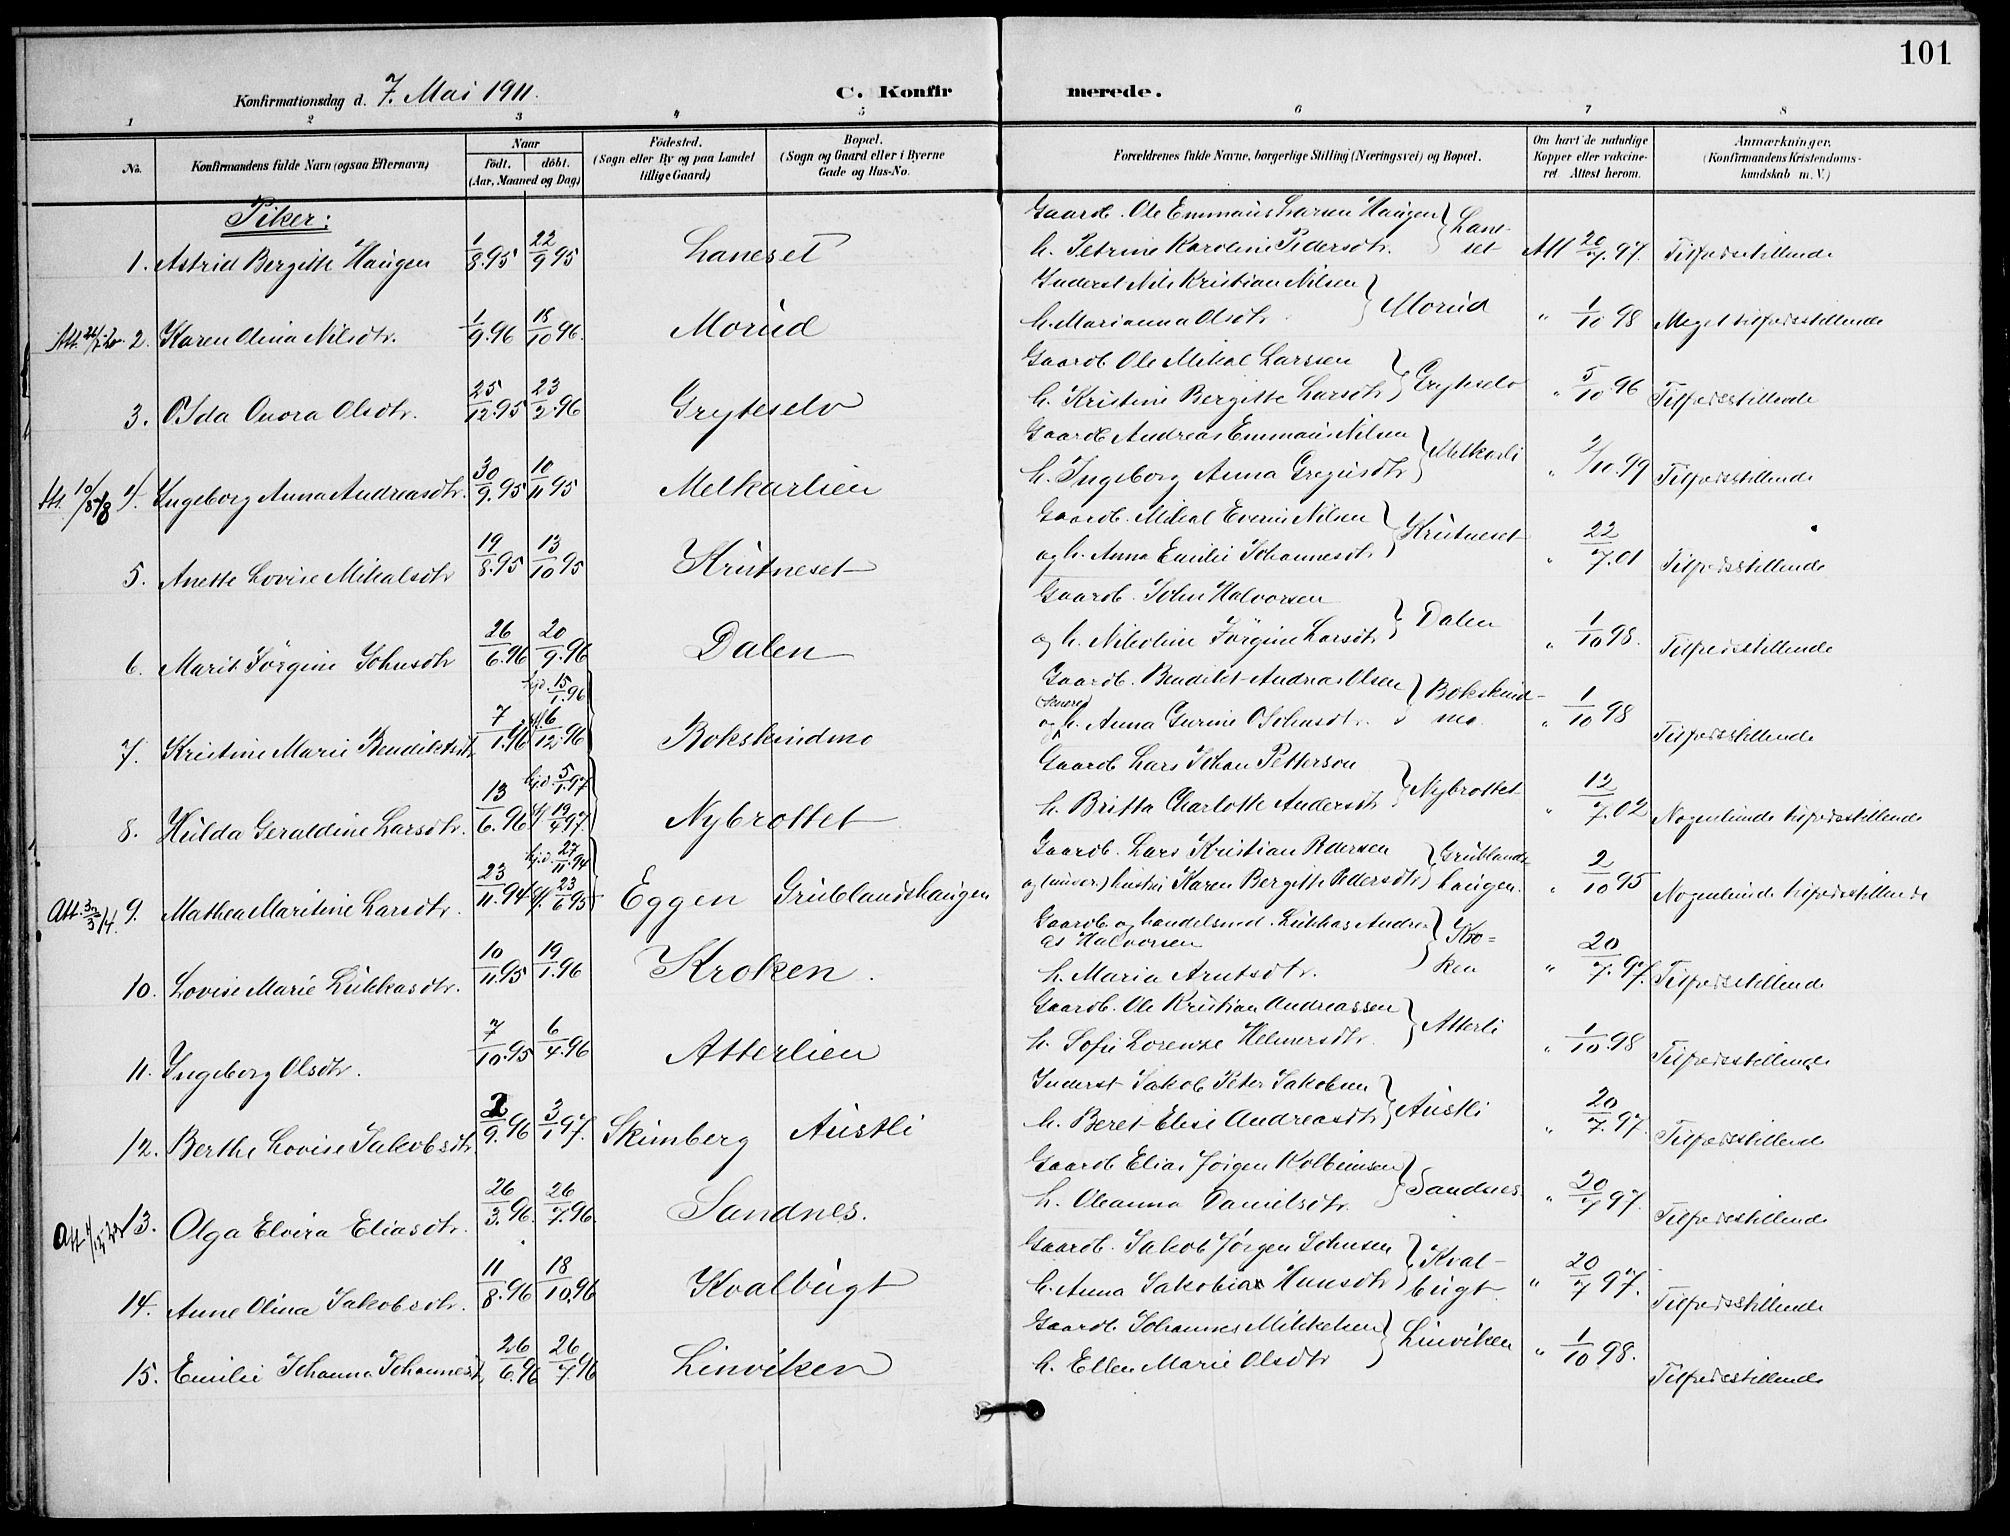 101
Konfirmationsdag d. 7. Mai 1911.
C. Konfirmerede.
1 2 3 4 5 6 7 8
No. Konfirmandens fulde Navn (ogsaa Efternavn) Naar födt. döbt. (Aar, Maaned og Dag) Födested. (Sogn eller By og paa Landet tillige Gaard) Bopæl. (Sogn og Gaard eller i Byerne Gade og Hus-No. Forældrenes fulde Navne, borgerlige Stilling (Næringsvei) og Bopæl. Om havt de naturlige Kopper eller vakcineret Attest herom. Anmærkninger. (Konfirmandens Kristendomskundskab m. V.)
Piker:
Gaardb. Ole Emmaus Larsen Haugen
1. Astrid Bergitte Haugen 1/8.95 22/9 95 Laneset h. Petrine Karoline Pedersdtr. } Laneset Att 20/7.97. Tilfredsstillende
Inderst Nils Kristian Nilsen
2. Karen Olina Nilsdtr. 1/9.96 18/10 96. Morud h. Marianna Olsdtr } Morud " 1/10 98 Meget tilfredsstillende
Gaardb Ole Mikal Larssen
3. Ida Onora Olsdtr. 25/12.95 23/2.96 Gryteselv h. Kristine Bergitte Larsdtr } Gryteselv " 5/10 96 Tilfredsstillende
Gaardb Andreas Emmaus Nilsen
4. Ingeborg Anna Andreasdtr. 30/9.95 10/11 95 Melkarlien h. Ingeborg Anna Gregusdtr } Melkarli " 2/10.99 Tilfredsstillende
Gaardb. Mikal Evenus Nilsen
5. Anette Lovise Mikalsdtr 19/8.95 13/10 95 Krutneset og h. Anna Emilie Johannesdtr } Krutneset " 22/7.01 Tilfredsstillende
Gaardb. John Halvorsen
6. Marit Jörgine Johnsdtr 26/6.96 20/9.96 Dalen og h. Nikoline Jörgine Larsdtr } Dalen " 1/10 98. Tilfredsstillende
hjd. 15/1.96 Gaardb. Bendikt Andreas Olsen
7. Kristine Marie Bendiktsdtr 7/1.96 6/12.96 Bokskindmo og h. Anna Gurine Johnsdtr. } Bokskindmo. " 1/10 98 Tilfredsstillende
hjd. 5/1.97 Gaardb Lars Johan Petterson
8. Hulda Geraldine Larsdtr. 13/6.96 19/4 97. Nybrottet h. Britta Charlotte Andersdtr } Nybrottet " 12/7.02 Nogenlunde tilfredsstillende
hjd. 27/11.94 Gaardb. Lars Kristian Pedersen
9. Mathea Maritine Larsdtr. 23/11.94 23/6 95 Eggen Grublandshaugen hustru Karen Bergitte Pedersdtr } Grublandshaugen. " 2/10 95 Nogenlunde tilfredsstillende
Gaardb og handelsmd. Lukkas Andreas Halvorsen
10. Lovise Marie Lukkasdtr. 10/11.95 19/1.96 Kroken. h. Maria Arntsdtr. } Kroken " 20/7.97. Tilfredsstillende
Gaardb. Ole Kristian Andreassen
11. Ingeborg Olsdtr. 7/10.95 6/4.96 Atterlien h. Sofie Lorenze Helmersdtr. } Atterli " 1/10.98 Tilfredsstillende
Inderst Jakob Peter Jakobsen
12. Berthe Lovise Jakobsdtr 2/9.96 3/1 97. Skimberg Austli h. Beret Elise Andreasdtr } Austli " 20/7.97. Tilfredsstillende
Gaardb Elias Jörgen Kolbeinsen
13. Olga Elvira Eliasdtr. 26/3.96. 26/7.96. Sandnes. h. Oleanna Danielsdtr. } Sandnes " 20/7 97. Tilfredsstillende
Gaardb. Jakob Jörgen Johnsen
14. Anne Olina Jakobsdtr. 11/8.96 18/10.96 Kvalbugt h. Anna Jakobia Hansdtr } Kvalbugt " 20/7 97. Tilfredsstillende
Gaardb. Johannes Mikkelsen
15. Emilie Johanna Johannesdtr 26/6.96 26/7.96 Linviken h. Ellen Marie Olsdtr } Linviken " 1/10 98. Tilfredsstillende